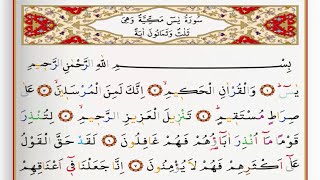 سُورَةُ يٰسٓ مَكِّيَّةٌ وَهِيَ
ثَلٰثٌ وَثَمَانُونَ اٰيَةً
بِسْمِ اللّٰهِ الرَّحْمٰنِ الرَّحٖيمِ
يٰسٓ ﴿١﴾ وَالْقُرْاٰنِ الْحَكٖيمِ ﴿٢﴾ اِنَّكَ لَمِنَ الْمُرْسَلٖينَ ﴿٣﴾ عَلٰى
صِرَاطٍ مُسْتَقٖيمٍ ﴿٤﴾ تَنْزٖيلَ الْعَزٖيزِ الرَّحٖيمِ ﴿٥﴾ لِتُنْذِرَ
قَوْمًا مَٓا اُنْذِرَ اٰبَٓاؤُ۬هُمْ فَهُمْ غَافِلُونَ ﴿٦﴾ لَقَدْ حَقَّ الْقَوْلُ
عَلٰٓى اَكْثَرِهِمْ فَهُمْ لَا يُؤْمِنُونَ ﴿٧﴾ اِنَّا جَعَلْنَا فٖٓي اَعْنَاقِهِمْ